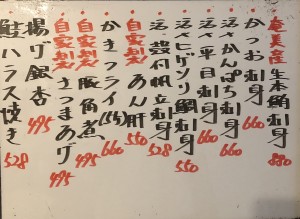 奄美産生本鮪刺身 880
かつお刺身 660
活〆かんぱち刺身 660
活〆平目刺身 660
活〆ヒゲソリ鯛刺身 550
活〆殻付帆立刺身 528
自家製あん肝 550
かきフライ 660
自家製豚角煮 495
自家製さつまあげ 495
揚げ銀杏 495
鮭ハラス焼き 528